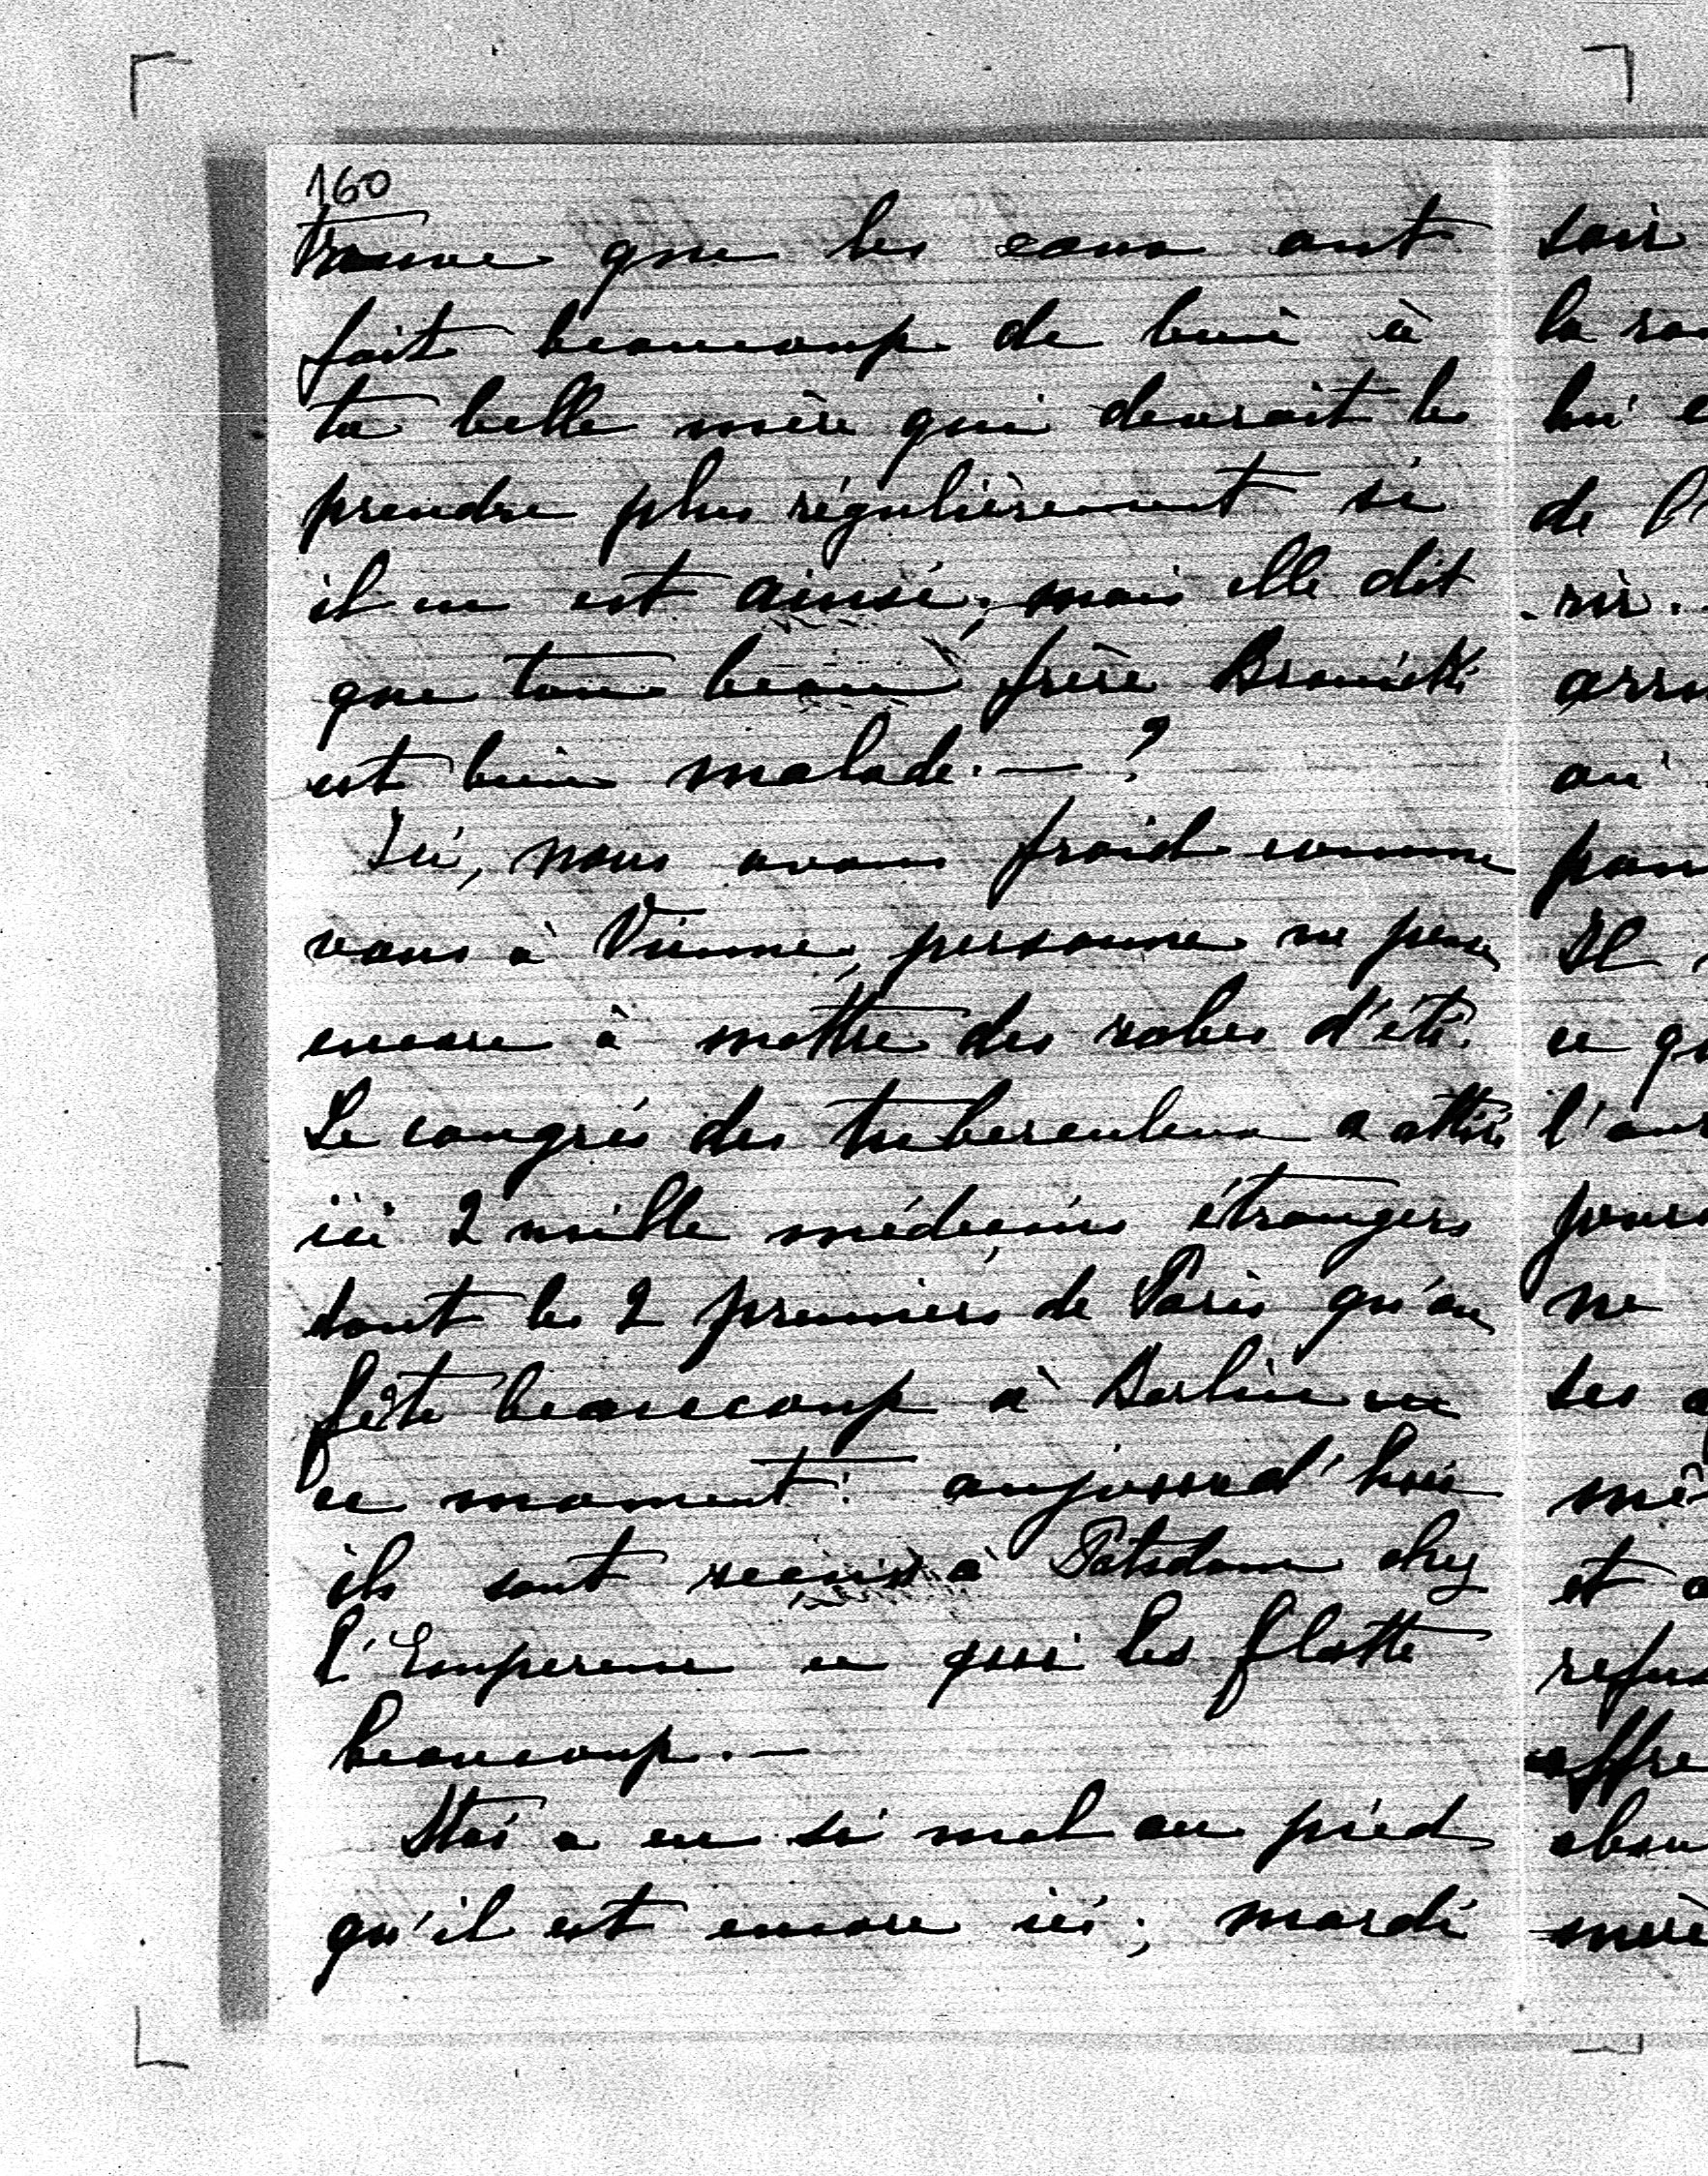 160
trouve que les eaux ont
fait beaucoup de bien à
ta belle mère qui devrait les
prendre plus régulièrement si
il en est ainsi; mais elle dit
que ton beau frère
est bien malade. — ?
Ici, nous avons froid comme
vous à Vienne, personne ne pense
encore à mettre des robes d'été.
Le congrès des tuberculeux a attiré
ici 2 mille médecins étrangers
dont les 2 premiers de Paris qu'on
fête beaucoup à Berlin en
ce moment: aujourd'hui
ils sont reçus à Potsdam chez
l'Empereur ce qui les flatte
beaucoup. —
a eu si mal au pied
qu'il est encore ici; mardi
soir
la
lui
de l'
rir.
ou
Il
ce
ne
ses
et